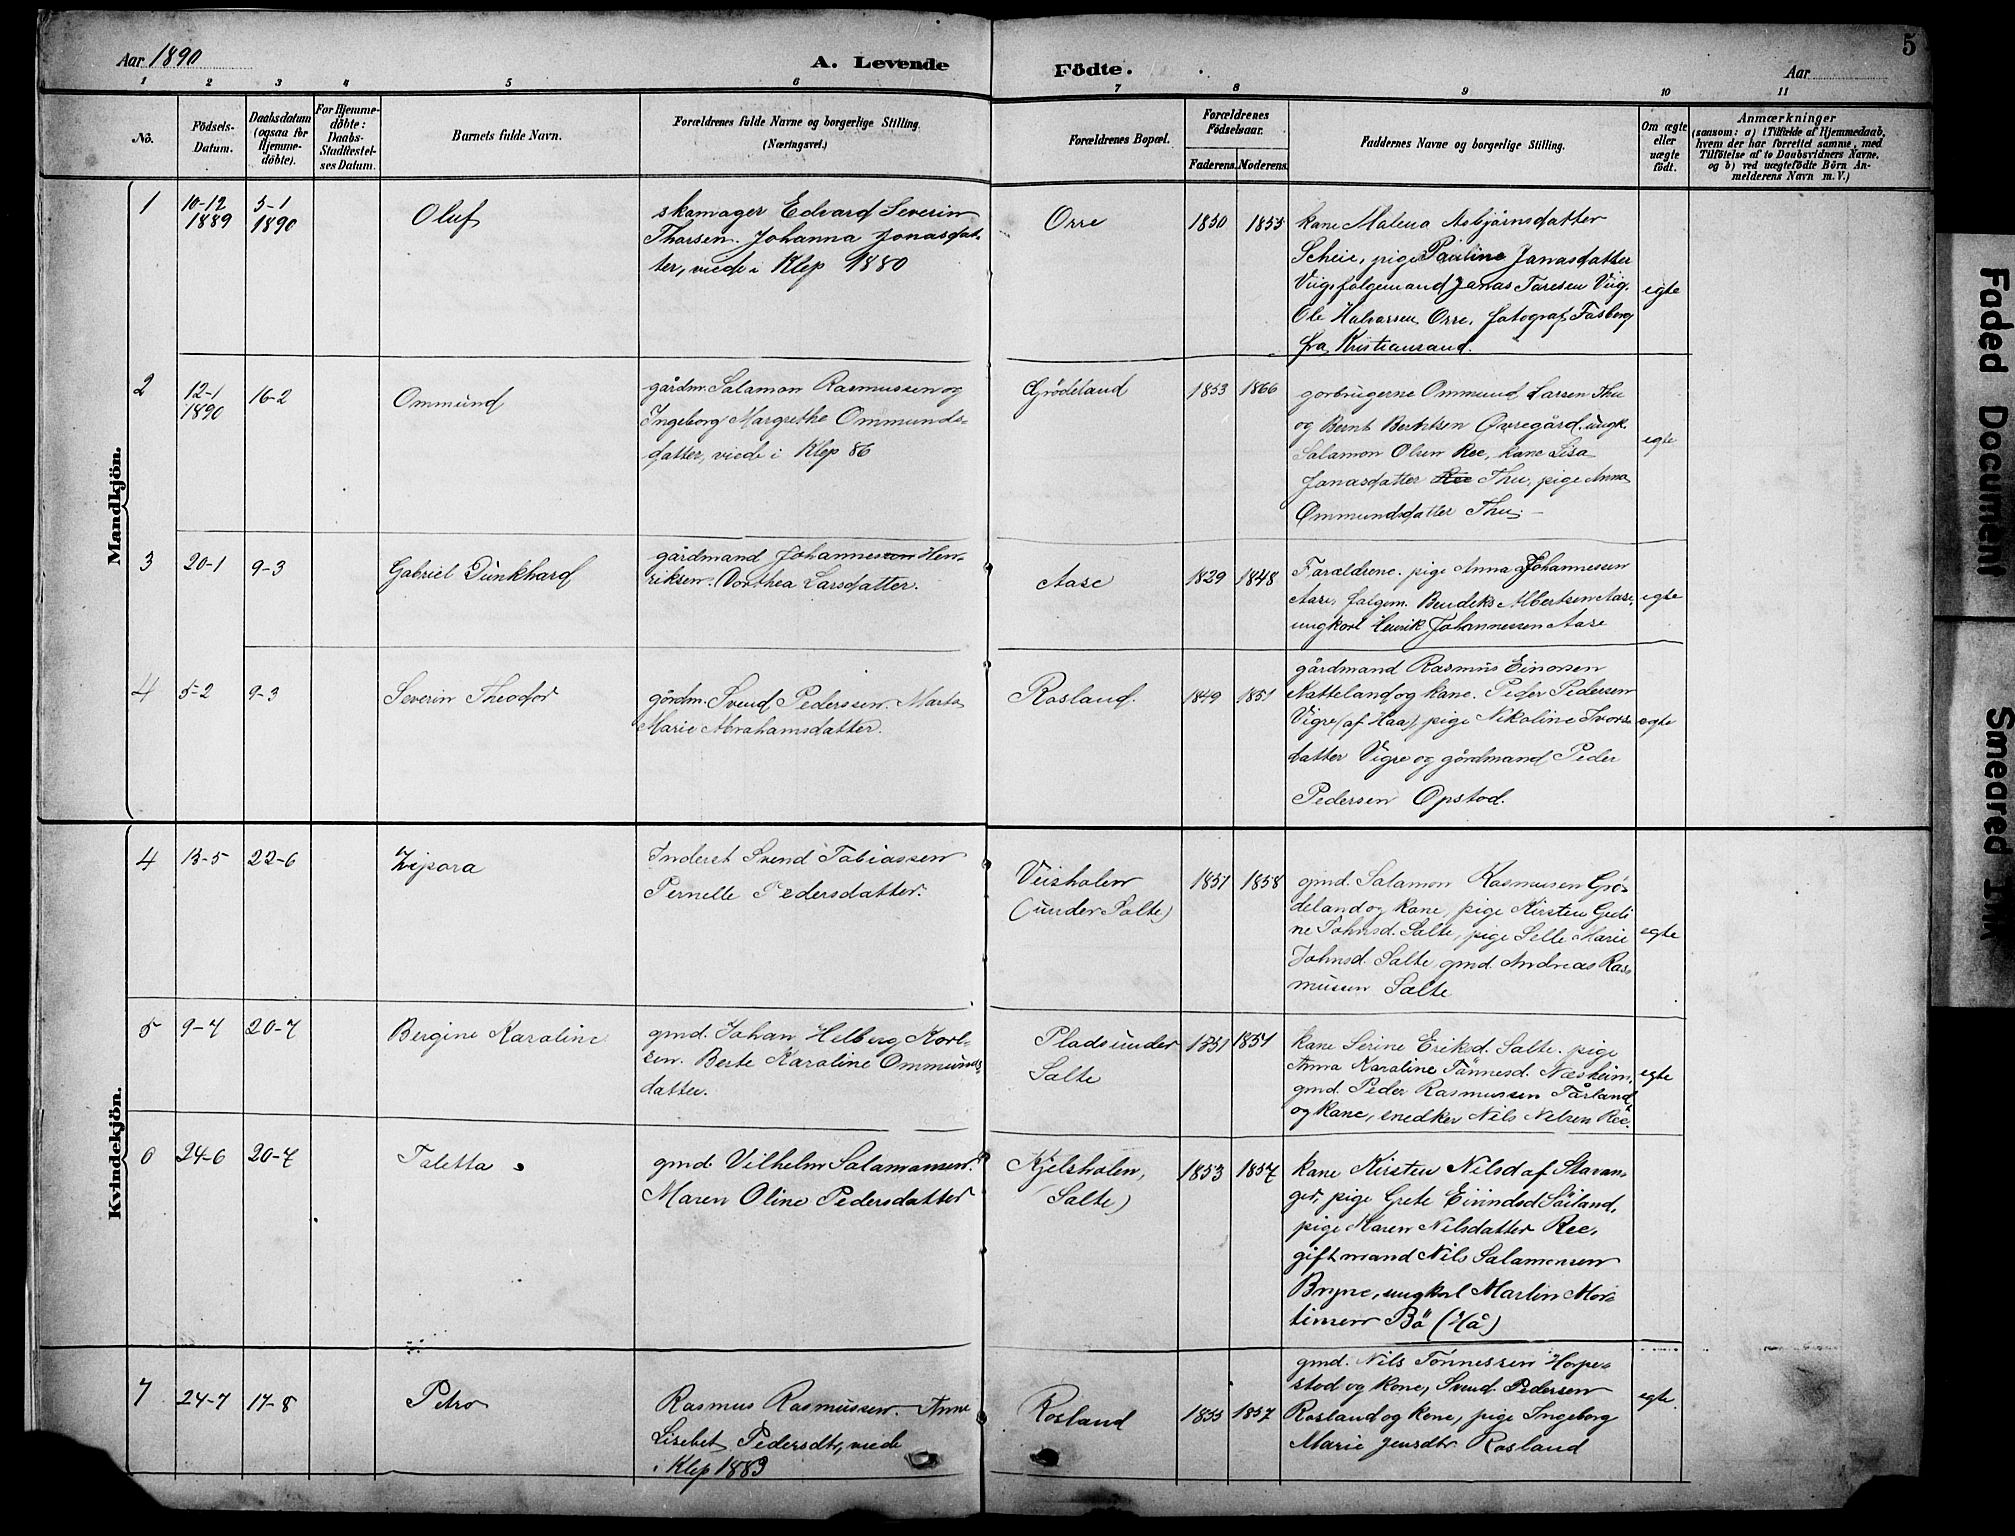 Aar 1890
A. Levende
Födte.
Aar
5
1 2 3 4 5 6 7 8 9 10 11
No.
Födsels-
Datum.
Daabsdatum
(ogsaa for
Hjemme-
döbte).
For Hjemme-
döbte:
Daabs-
Stadfæstel-
ses Datum.
Barnets fulde Navn.
Forældrenes fulde Navne og borgerlige Stilling.
(Næringsvei.)
Forældrenes Bopæl.
Forældrenes
Födselsaar.
Faderens. Moderens.
Faddernes Navne og borgerlige Stilling.
Om ægte
eller
uægte
födt.
Anmærkninger
(saasom: a) i Tilfælde af Hjemmedaab,
hvem der har forrettet samme, med
Tilföielse af to Daabsvidners Navne,
og b) ved uægtefödte Börn An-
melderens Navn m. V.)
Mandkjön.
1
10-12
1889
5-1
1890
Oluf
skomager Edvard Severin
Thorsen. Johanna Jonasdat-
ter, viede i Klep 1880
Orre
1850
1855
kone Malena Asbjørnsdatter
Scheie, pige Pauline Jonasdatter
Viig, folgemand Jonas Taresen Viig.
Ole Halvorsen Orre, fotograf Fosberg
fra Kristiansand.
egte
2
12-1
1890
16-2
Ommund
gårdm. Salamon Rasmussen og
Ingeborg Margrethe Ommunds-
datter, viede i Klep 86
Grödeland
1853
1866
gorbrugerne Ommund Larsen Thu
og Bernt Berntsen Øvregård. ungk.
Salamon Olsen Ree, kone Lisa
Jonasdatter Ree Thu, pige Anna
Ommundsdatter Thu. -
egte
3
20-1
9-3
Gabriel Dunkhard
gårdmand Johannessen Hen-
riksen. Dorthea Larsdatter.
Aase
1829
1848
Forældrene. pige Anna Johannessen
Aase, folgem. Bendiks Albertsen Aase,
ungkarl Henrik Johannessen Aase
egte
4
5-2
9-3
Severin Theodor
gårdm. Svend Pederssen. Marta
Marie Abrahamsdatter.
Rosland.
1849
1851
gårdmand Rasmus Einarsen
Natteland og kone. Peder Pedersen
Vigre (af Haa), pige Nikoline Ivars-
datter Vigre og gårdmand Peder
Pedersen Opstad.
egte
Kvindekjön.
4
13-5
22-6
Zipora
Inderst Svend Tobiassen
Pernelle Pedersdatter.
Veisholen
(under Salte)
1851
1858
gmd. Salamon Rasmusen Grö-
deland og kone, pige Kirsten Gedi
ne Johnsd. Salte, pige Selle Marie
Johnsd. Salte, gmd. Andreas Ras-
musen Salte
egte
5
9-7
20-7
Bergine Karoline
gmd. Johan Helberg Karl-
sen. Berte Karoline Ommunds
datter.
Plads under
Salte
1851
1851
kone Serine Eriksd. Salte. pige
Anna Karoline Tönnesd. Næsheim,
gmd. Peder Rasmussen Tårland
og kone, snedker Nils Nelsen Ree.
egte
6
24-6
20-7
Taletta
gmd. Vilhelm Salamonsen.
Maren Oline Pedersdatter
Kjelsholen,
(Salte)
1853
1857
kone Kirsten Nilsd af Stavan-
ger, pige Grete Eivindsd Söiland,
pige Maren Nilsdatter Ree,
gift mand Nils Salamonsen
Bryne, ungkarl Martin Mor-
tensen Bö (Hå)
7
24-7
17-8
Petra
Rasmus Rasmussen. Anne
Lisebet Pedersdtr, viede
i Klep 1883
Rosland
1855
1857
gmd. Nils Tönnessen Horpe-
stad og kone, Svend Pedersen
Rosland og kone, pige Ingeborg
Marie Jensdtr Rosland
egte
Faded Document
Smeared Ink